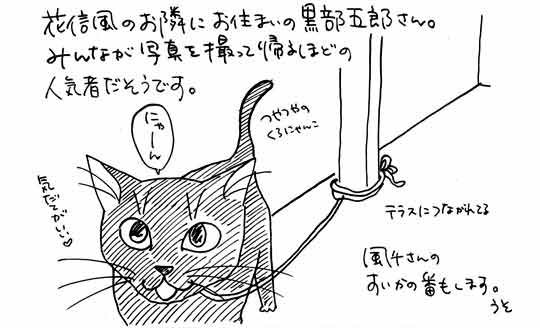 花信風のお隣にお住まいの黒部五郎さん。
みんなが写真を撮って帰るほどの
人気者だそうです。
にゃーん
つやつやの
くろにゃんこ
気だてがいい♡
テラスにつながれてる
風千さんの
すいかの番もします。
うそ